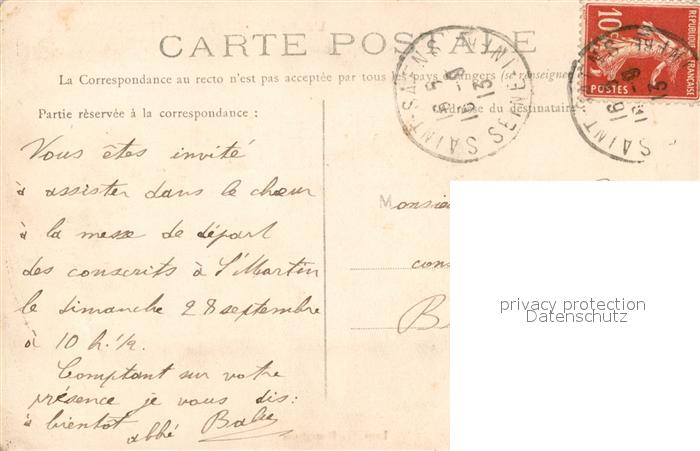 CARTE POSTALE
La Correspondance au recto n'est pas acceptée par tous les pays étrangers (se renseigner
Partie réservée à la correspondance :
Adresse du destinataire
REPUBLIQUE FRANÇAISE
10
POSTES
SAINT-SAËNS
SEINE INF
16
9
13
SAINT
16
9
13
Vous êtes invité
à assister dans le chœur
à la messe de départ
des conscrits à St Martin
le dimanche 28 septembre
à 10 h. 1/2.
Comptant sur votre
présence je vous dis :
à bientôt
abbé
Monsie
cons
B
privacy protection
Datenschutz